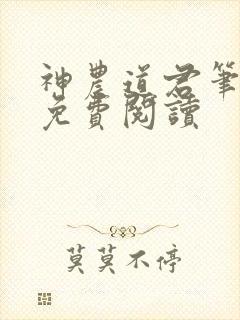 神農道君筆
免費閱讀
莫莫不停